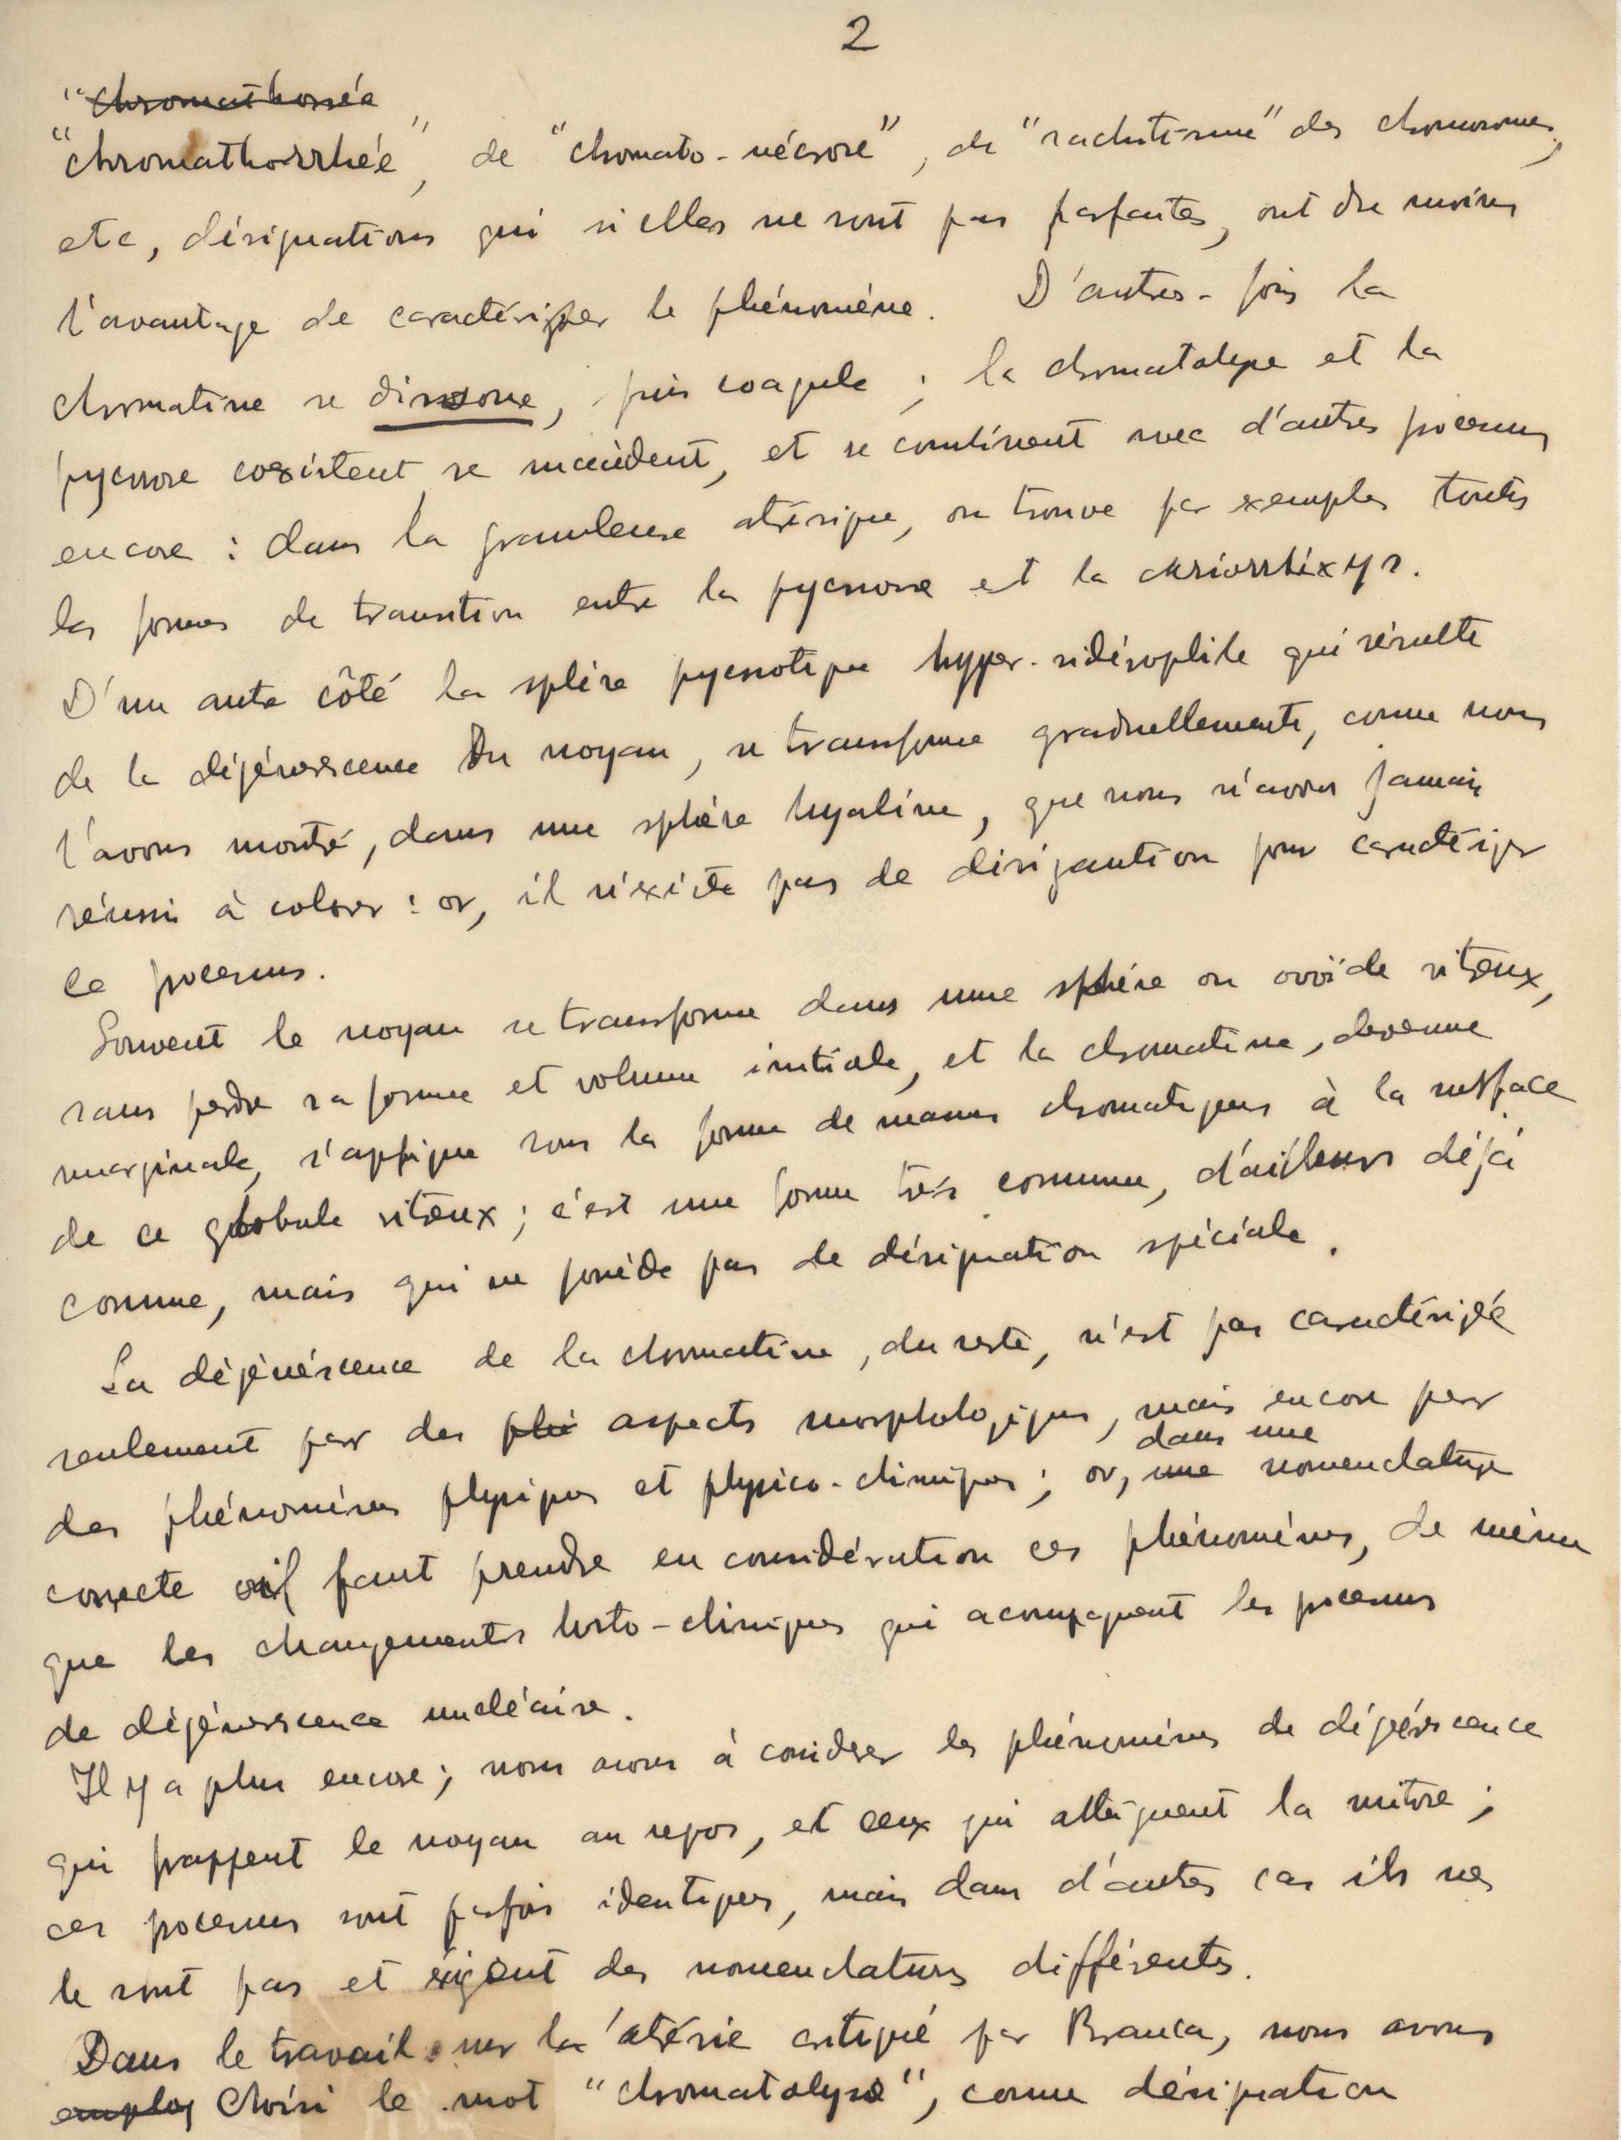 2
"chromathorrée
"chromathorrhée", de "chromato-nécrose", de "rachitisme" des chromosomes,
etc, désignations qui si elles ne sont pas parfaites, ont du moins
l'avantage de caractériser le phénomène. D'autres-fois la
chromatine se dissoue, puis coagule ; la chromatolyse et la
pycnose coexistent, se succèdent, et se combinent avec d'autres processus
encore : dans la granuleuse atrésique, on trouve par exemples toutes
les formes de transition entre la pycnose et la
D'un autre côté la sphère pycnotique hyper-sidérophile qui résulte
de la dégénerescence du noyau, se transforme graduellemente, comme nous
l'avons montré, dans une sphère hyaline, que nous n'avons jamais
réussi à colorer : or, il n'existe pas de désigantion pour caractériser
ce processus.
Souvent le noyau se transforme dans une sphère ou ovoïde vitreux,
sans perdre sa forme et volume initiale, et la chromatine, devenue
marginale, s'applique sous la forme de masses chromatiques à la surface
de ce globule vitreux ; c'est une forme très commune, d'ailleurs déjà
connue, mais qui ne possède pas de désignation spéciale.
La dégénérescence de la chromatine, du reste, n'est pas caractérisée
seulement par des phé aspects morphologiques, mais encore par
dans une
des phénomènes physiques et physico-chimiques ; or, une nomenclature
correcte il faut prendre en considération ces phénomènes, de même
que les changements histo-chimiques qui acompagnent les processus
de dégénerescence nucléaire.
Il y a plus encore ; nous avons à considerer les phénomènes de dégénérescence
qui frappent le noyau au repos, et ceux qui atteignent la mitose ;
ces processus sont parfois identiques, mais dans d'autres cas ils ne
le sont pas et exigent des nomenclatures différentes.
Dans le travail sur la atrésie critiqué par Branca, nous avons
employ choisi le mot "chromatolyse", comme désignation